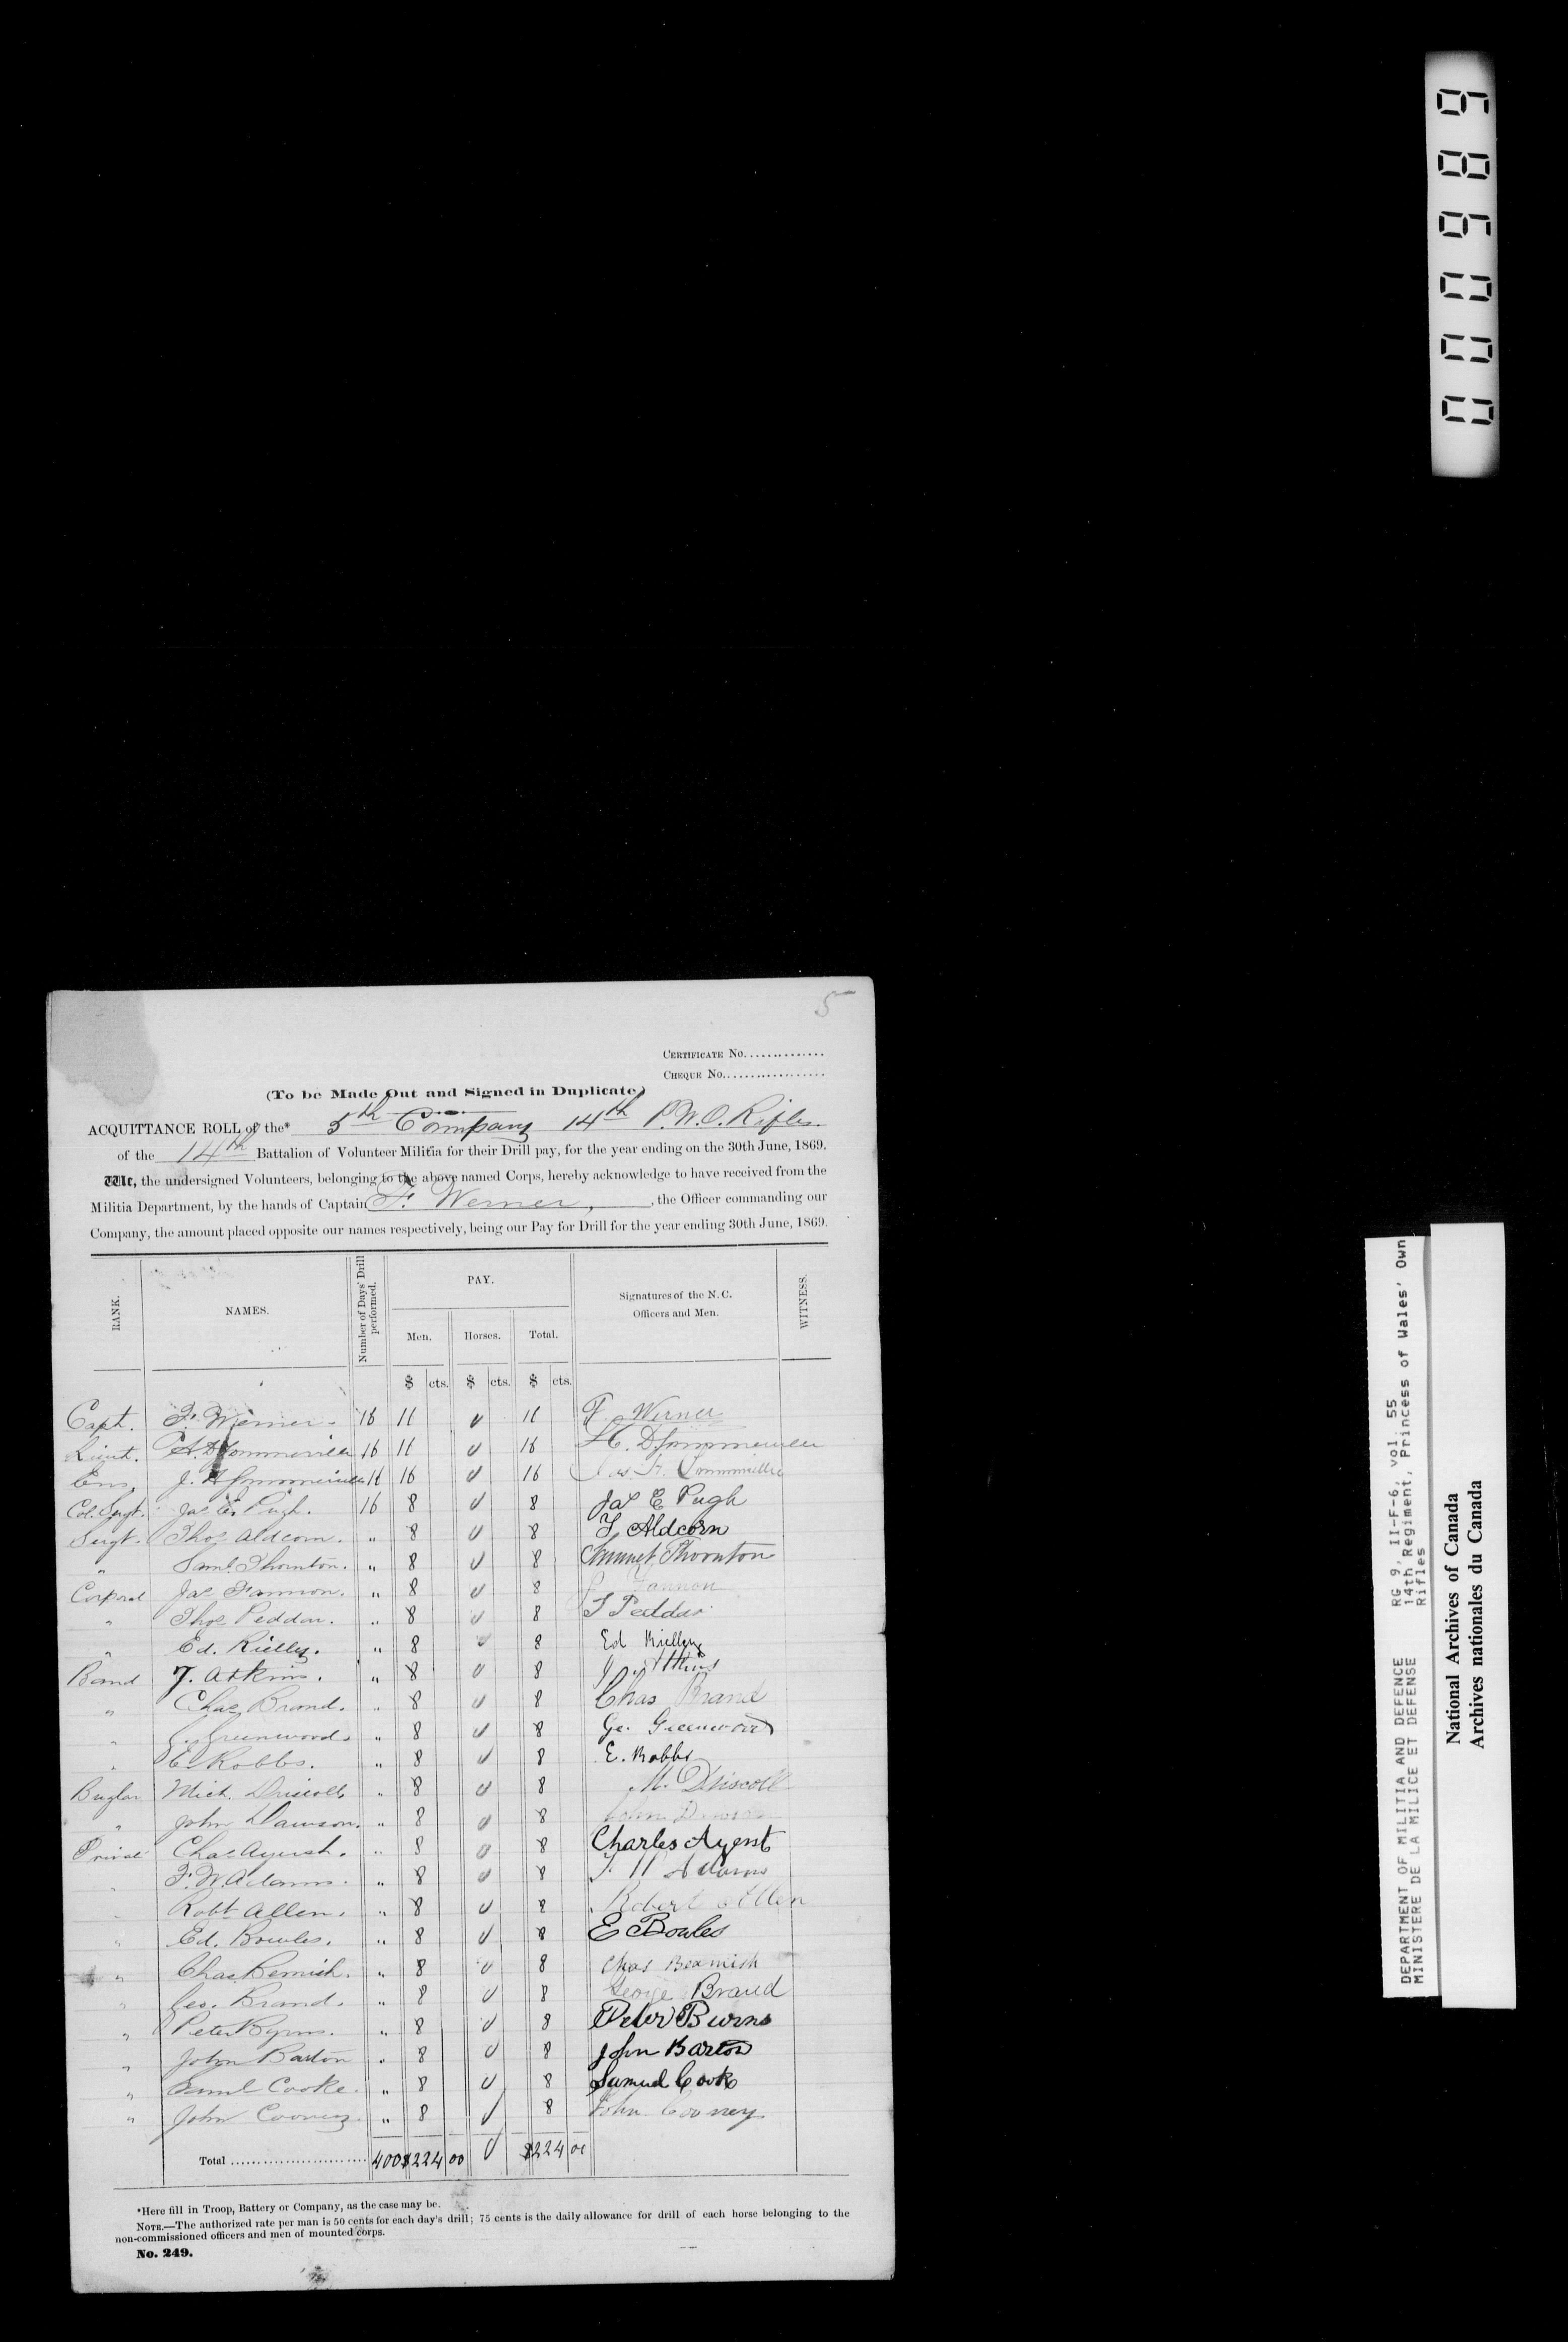 5
CERTIFICATE No..............
CHEQUE No..................
(To be Made Out and Signed in Duplicate)
ACQUITTANCE ROLL of the* 5th Company 14th P.W.O. Rifles.
of the 14th Battalion of Volunteer Militia for their Drill pay, for the year ending on the 30th June, 1869.
We, the undersigned Volunteers, belonging to the above named Corps, hereby acknowledge to have received from the
Militia Department, by the hands of Captain F. Werner, , the Officer commanding our
Company, the amount placed opposite our names respectively, being our Pay for Drill for the year ending 30th June, 1869.
RANK. NAMES. Number of Days' Drill performed. PAY. Signatures of the N. C. Officers and Men. WITNESS.
Men. Horses. Total.
$ cts. $ cts. $ cts.
Capt. F. Werner. 16 16 0 16 F. Werner
Lieut. 16 16 0 16
Ens. 16 16 0 16
Col. Sergt. Jas E. Pugh. 16 8 0 8 Jas E Pugh
Sergt. Thos Aldcorn. " 8 0 8 T Aldcorn
" Saml. Thornton. " 8 0 8 Samuel Thornton
Corporal Jas Fannon. " 8 0 8 Fannon
" Thos Peddar. " 8 0 8 T Peddar
" Ed. Rielly. " 8 0 8 Ed Rielly
Band J. Atkins. " 8 0 8 J Atkins
" Chas Brand. " 8 0 8 Chas Brand
" G. Greenwood. " 8 0 8 Ge. Greenwood
" E. Robbs. " 8 0 8 E. Robbs
Bugler Mich. Driscoll " 8 0 8 M. Driscoll
" John Dawson. " 8 0 8 John Dawson
Private Chas Ayersh. " 8 0 8 Charles Ayerst
" F. W. Adams. " 8 0 8 F. W Adams
" Robt Allen. " 8 0 8 Robert Allen
" Ed. Bowles. " 8 0 8 E Bowles
" Chas Bemish. " 8 0 8 Chas Beamish
" Geo. Brand. " 8 0 8 George Brand
" Peter Byrns. " 8 0 8 Peter Burns
" John Barton " 8 0 8 John Barton
" Saml Cooke. " 8 0 8 Samuel Cook
" John Cooney " 8 0 8 John Cooney
Total .......................... 400 $224 00 0 $224 00
*Here fill in Troop, Battery or Company, as the case may be.
NOTE.—The authorized rate per man is 50 cents for each day's drill; 75 cents is the daily allowance for drill of each horse belonging to the
non-commissioned officers and men of mounted corps.
No. 249.
000989
DEPARTMENT OF MILITIA AND DEFENCE RG 9, II-F-6, vol. 55
MINISTERE DE LA MILICE ET DEFENSE 14th Regiment, Princess of Wales' Own
Rifles
National Archives of Canada
Archives nationales du Canada